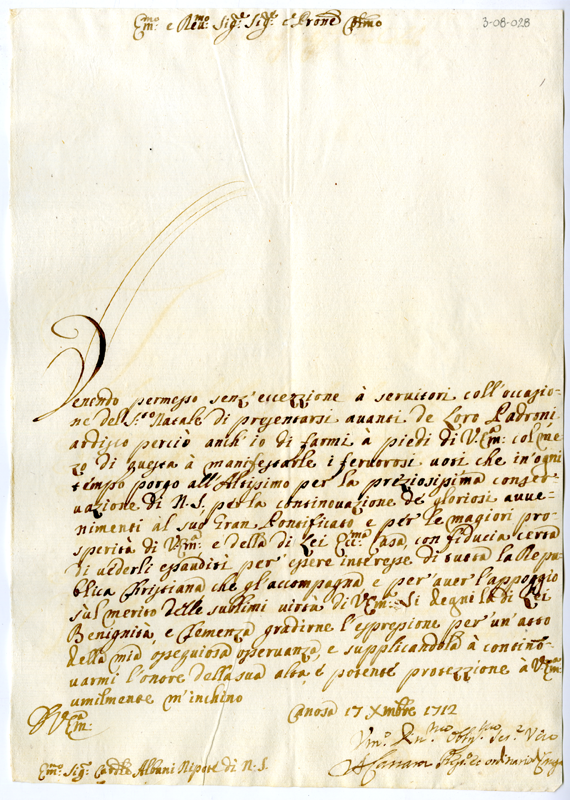 Em.mo e Rev.mo Sig.r Sig.r e Prone Col.mo
3-08-028
Venendo permesso senz'eccezzione à seruitori coll'occasio-
ne del S.to Natale di presentarsi auanti de Loro Padroni
ardisco perciò anch'io di farmi à piedi di V. Em.: col me-
zo di questa à manifestarle i feruorosi uoti che in'ogni
tempo porgo all'Altissimo per la preziosissima conser-
uazione di N. S. per la continouazione de gloriosi auue-
nimenti al suo Gran Pontificato e per le magiori pro-
sperità di V. Em.: e della di Lei Ecc.ma Casa, con fiducia certa
di uederli esauditi per essere interesse di tutta la Repu-
blica Christiana che gl'accompagna e per auer l'appoggio
sùl merito delle sublimi uirtù di V. Em.: Si degni la di Lei
Benignità, e Clemenza gradirne l'espressione per un'atto
della mia osseguiosa osseruanza, e supplicandola à contino-
uarmi l'onore della sua alta, e potente protezzione à V. Em.:
umilmente m'inchino
D V. Em.:
Canosa 17 Xmbre 1712
Em.mo Sig.r Card.le Albani Nipote di N. S.